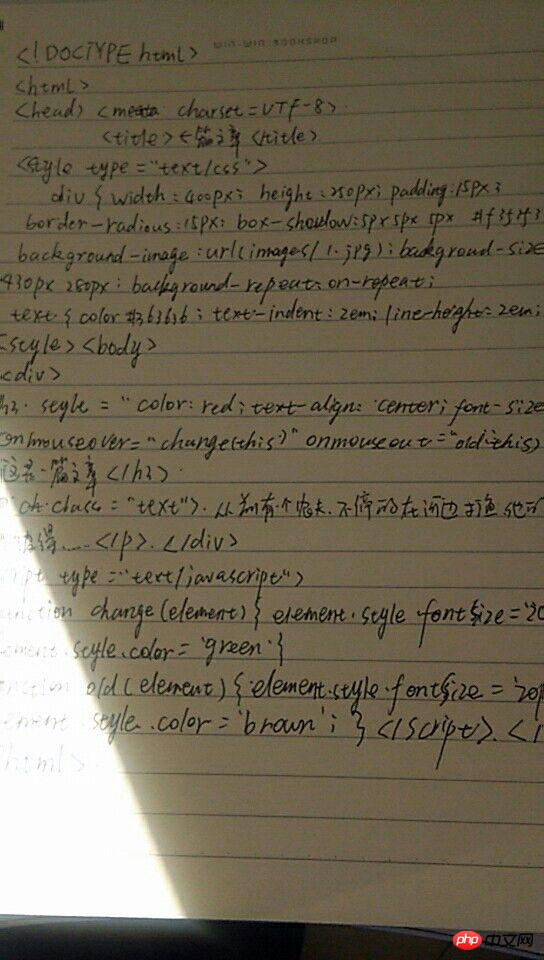 WIN-WIN BOOKSHOP
<!DOCTYPE html>
<html>
<head> <meta charset=UTF-8>.
<title>一篇文章</title>
<style type="text/css">
div { width:400px; height:250px; padding:15px;
border-radious:15px; box-shadow:5px 5px 5px #f3f3f3
background-image:url(images/1.jpg); background-size
430px 280px; background-repeat:on-repeat;
text { color #363636; text-indent:2em; line-height:2em;
<style><body>
<div>
style = "color: red; text-align: center; font-size
onmouseover="change(this)" onmouseout="old(this)
这是一篇文章</h3>.
class="text">. 从前有个农夫, 不停的在河边
....</p>.</div>
type="text/javascript">
change(element) { element.style.fontSize='20
.style.color='green'}
old(element) { element.style.fontSize='20p
.style.color='brown'; } </script>. </
html>
php中文网